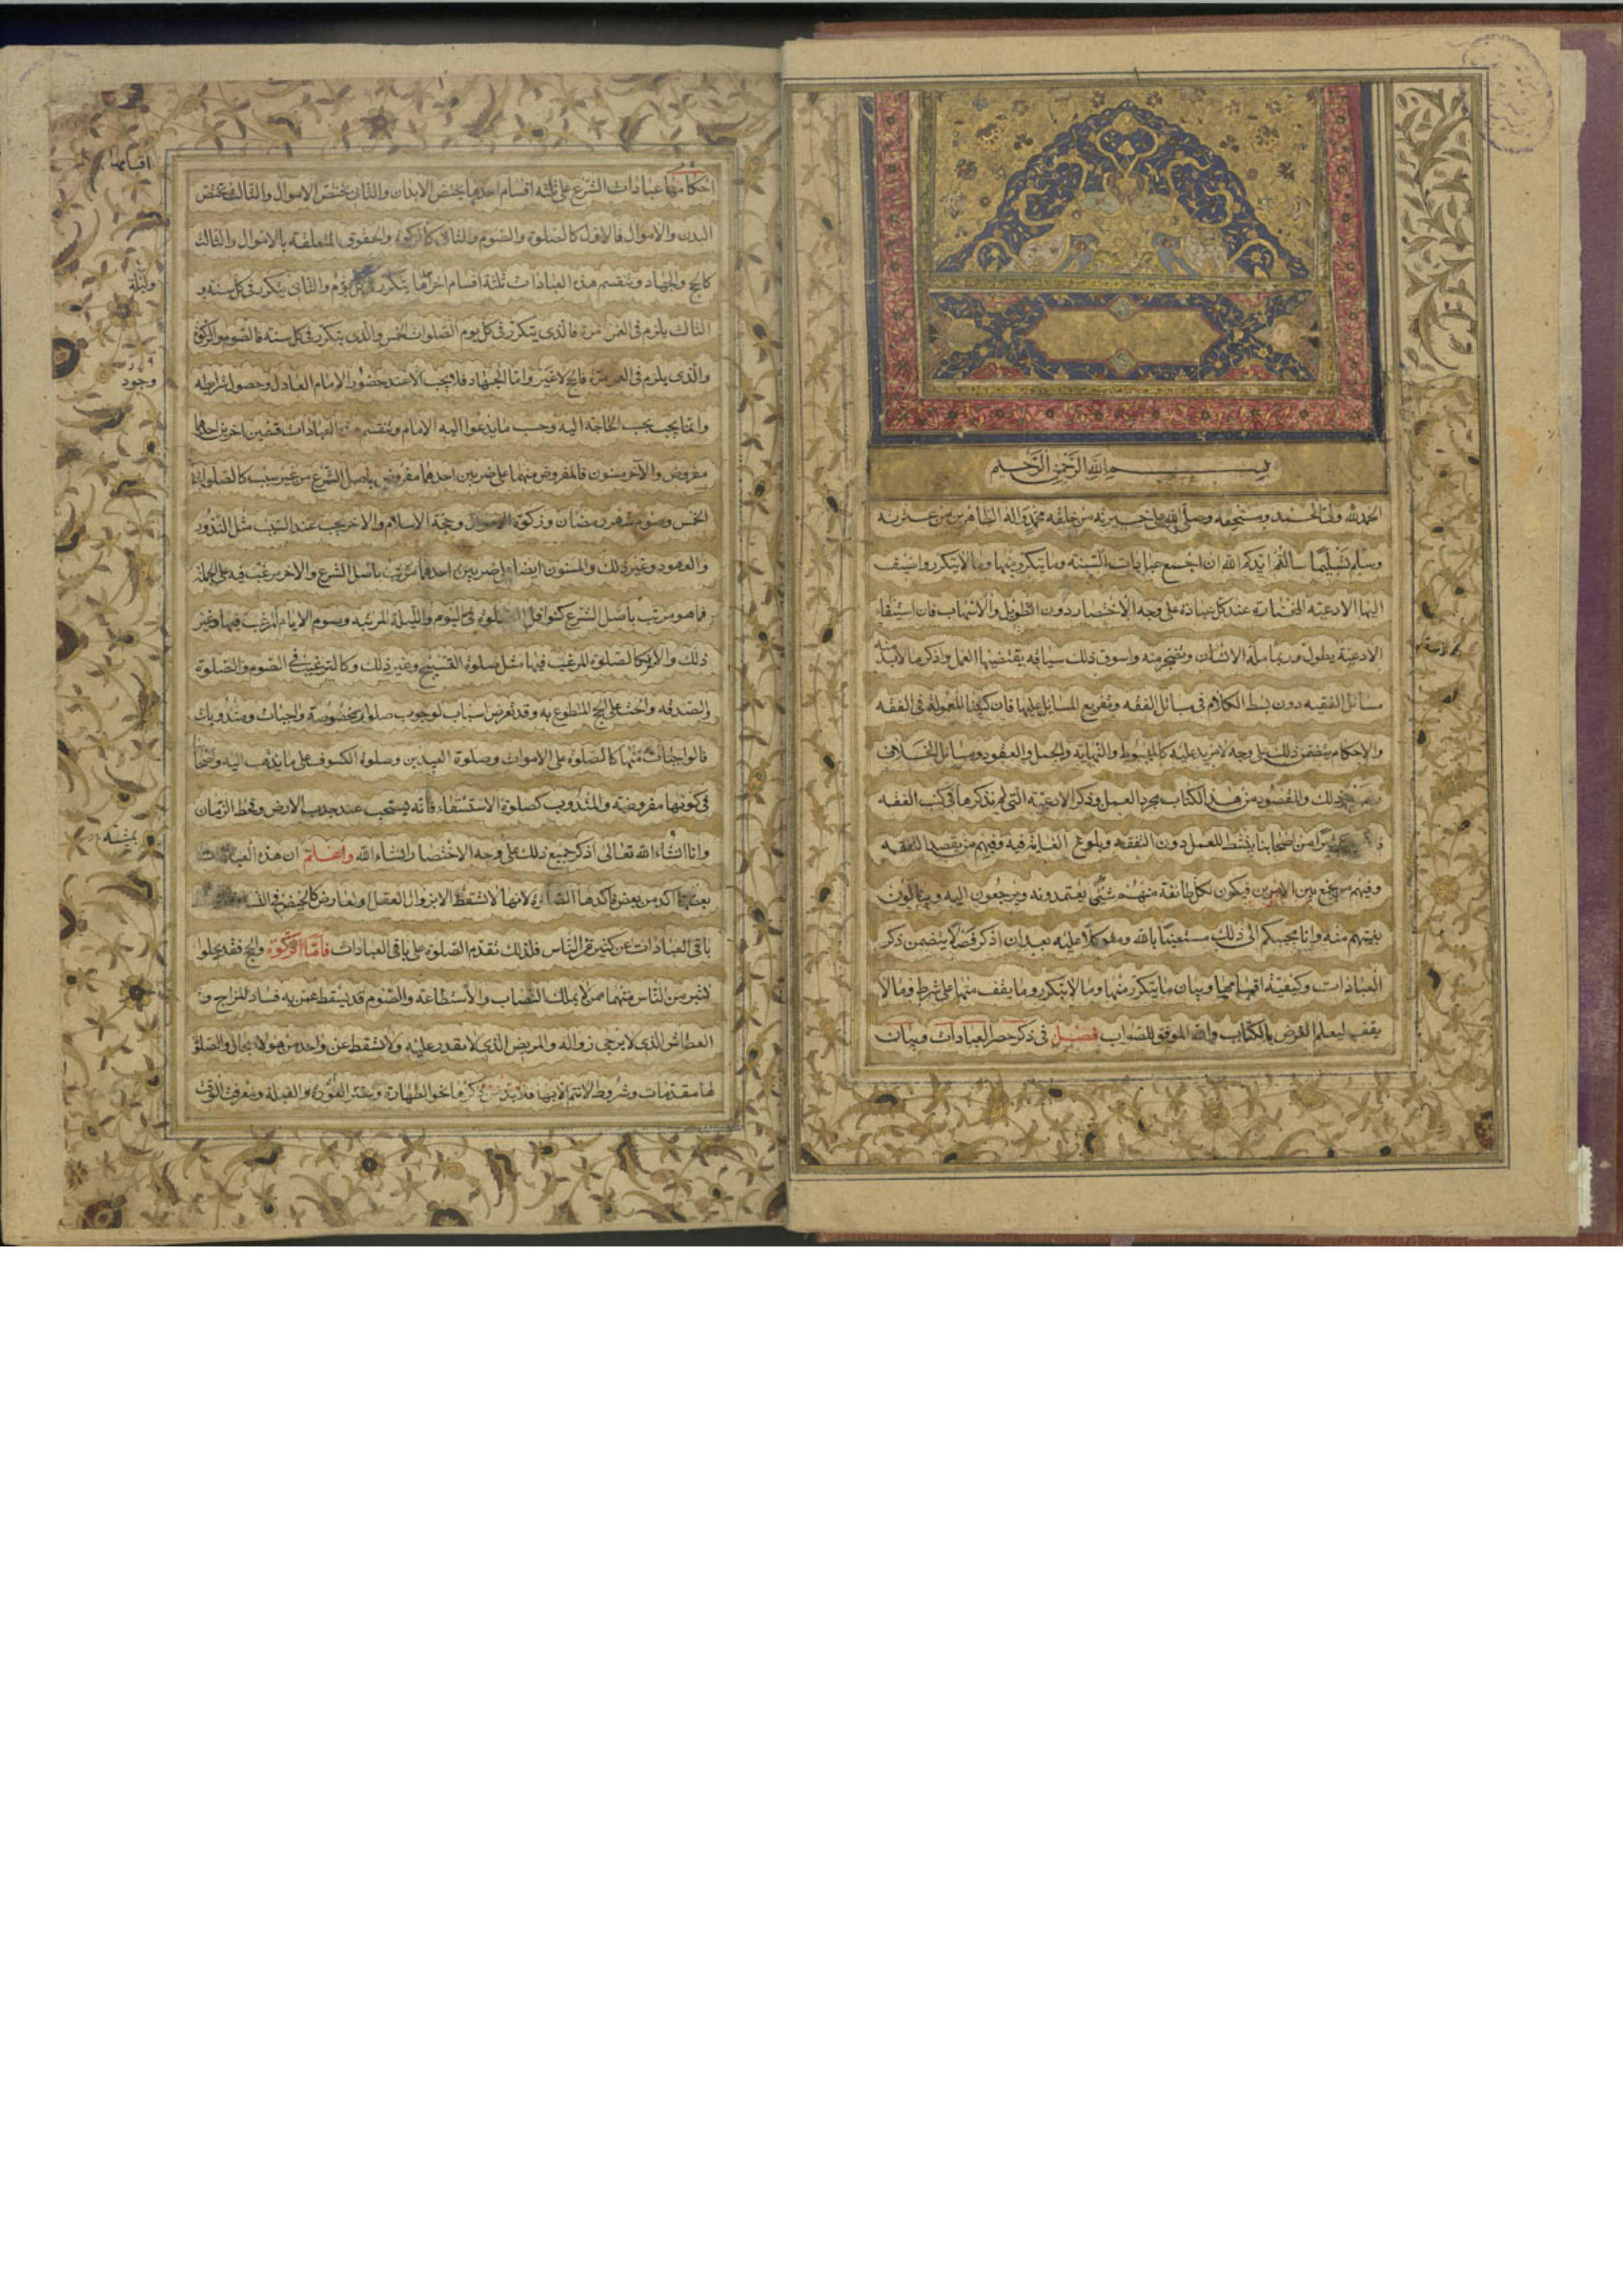 بسم الله الرحمن الرحيم
الحمد لله ولى الحمد ومستحقه وصلى الله على خيرته من خلقه محمد واله الطاهرين من عترته
وسلم تسليما سالتم ايدكم الله ان اجمع عبادات السنة وما يتكرر منها وما لا يتكرر واضيف
اليها الادعية المختارة عند كل عبادة على وجه الاختصار دون التطويل والاسهاب فان استيفاء
الادعية يطول وربما مله الانسان وتضجر منه واسوق ذلك سياقه يقتضيها العمل واذكر ما لابد منه
مسائل الفقيه دون بسط الكلام فى مسائل الفقه وتفريع المسايل عليها فان كتبنا المعمولة فى الفقه
والاحكام يتضمن ذلك على وجه لا مزيد عليه كالمبسوط والنهاية والجمل والعقود ومسائل الخلاف
ذلك والمقصود من هذا الكتاب مجرد العمل وذكر الادعية التى لم نذكرها فى كتب الفقه
من اصحابنا ينشط للعمل دون التفقه وبلوغ الغاية فيه وفيهم من يقصد التفقه
وفيهم من يجمع بين الامرين فيكون لكل طائفة منهم شئ يعتمدونه ويرجعون اليه وينالون
بغيتهم منه وانا مجيبكم الى ذلك مستعينا بالله ومتوكلا عليه بعد ان اذكر فصلا يتضمن ذكر
العبادات وكيفية اقسامها وبيان ما يتكرر منها وما لا يتكرر وما يقف منها على شرط وما لا
يقف ليعلم الغرض بالكتاب والله الموفق للصواب فصل فى ذكر حصر العبادات وبيان
اقسامها
احكامها عبادات الشرع على ثلثة اقسام احدها يختص الابدان والثانى يختص الاموال والثالث يختص
البدن والاموال فالاول كالصلوة والصوم والثانى كالزكوة والحقوق المتعلقة بالاموال والثالث
كالحج والجهاد وتنقسم هذه العبادات ثلثة اقسام اخر احدها يتكرر فى كل يوم والثانى يتكرر فى كل سنة و
وليلة
الثالث يلزم فى العمر مرة فالذى يتكرر فى كل يوم الصلوات الخمس والذى يتكرر فى كل سنة فالصوم والزكوة
والذى يلزم فى العمر مرة فالحج لا غير واما الجهاد فلا يجب الا عند حضور الامام العادل وحصول شرايطه
وجود
وانما يجب بحسب الحاجة اليه وحسب ما يدعوا اليه الامام وتنقسم هذه العبادات قسمين اخرين احدهما
مفروض والآخر مسنون فالمفروض منهما على ضربين احدهما مفروض باصل الشرع من غير سبب كالصلوات
الخمس وصوم شهر رمضان وزكوة الاموال وحجة الاسلام والاخر يجب عند السبب مثل النذور
والعهود وغير ذلك والمسنون ايضا على ضربين احدهما مرتب باصل الشرع والاخر مرغب فيه على الجملة
فما هو مرتب باصل الشرع كنوافل الصلوة فى اليوم والليلة المرتبة وصوم الايام المرغب فيها وغير
ذلك والاخر كالصلوة المرغب فيها مثل صلوة التسبيح وغير ذلك وكالترغيب فى الصوم والصلوة
والصدقة والحث على الحج المتطوع به وقد تعرض اسباب لوجوب صلوات مخصوصة واجبات ومندوبات
فالواجبات منها كالصلوة على الاموات وصلوة العيدين وصلوة الكسوف على ما يذهب اليه واضحا
فى كونها مفروضة والمندوب كصلوة الاستسقاء فانه يستحب عند جدب الارض وقحط الزمان
وانا انشاء الله تعالى اذكر جميع ذلك على وجه الاختصار انشاء الله واعلم ان هذه العبادات
بعضها اكد من بعض فاكدها الصلوة لانها لا تسقط الا بزوال العقل او لعارض كالحيض فى
باقى العبادات عن كثير من الناس فلذلك تقدم الصلوة على باقى العبادات فاما الزكوة والحج فقد يخلوا
كثير من الناس منهما ممن لا يملك النصاب والاستطاعة والصوم قد يسقط عمن به فساد المزاج و
العطاش الذى لا يرجى زواله والمريض الذى لا يقدر عليه ولا تسقط عن واحد من هولاء بحال والصلوة
لها مقدمات وشروط لا تتم الا بها فلا بد من ذكرها نحو الطهارة وستر العورة والقبلة ومعرفة الوقت